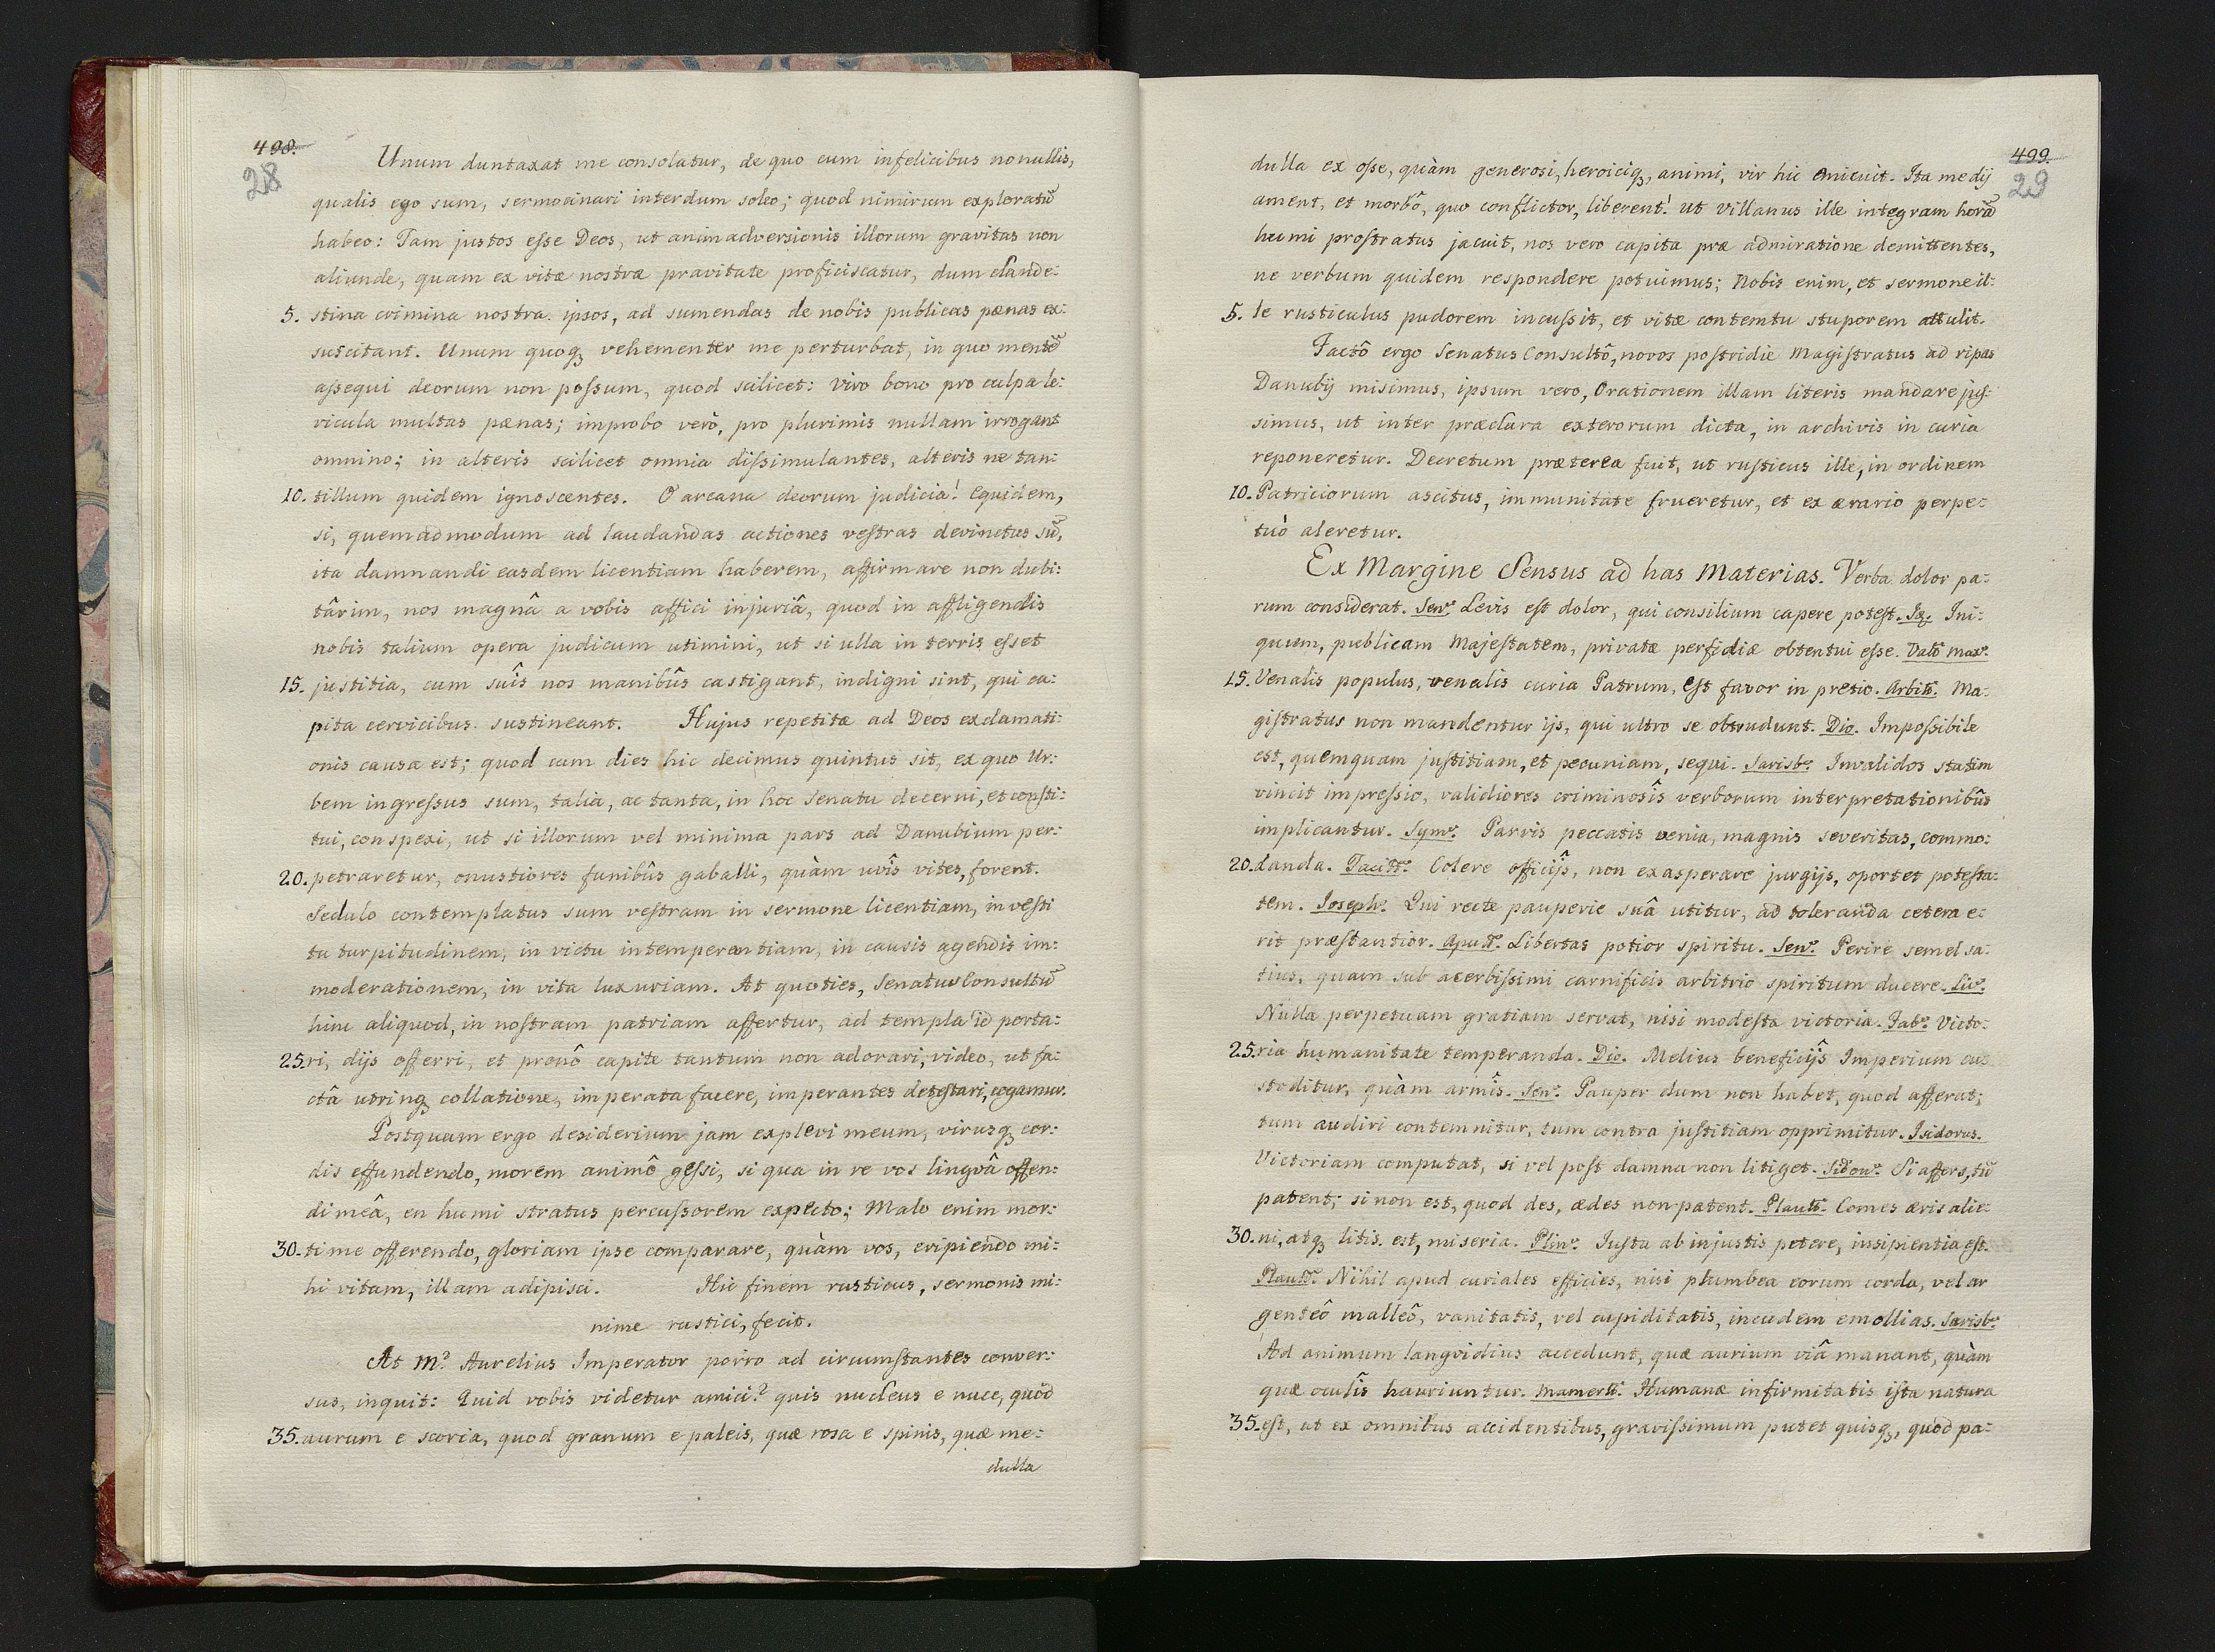 498.
28
Unum duntaxat me consolatur, de quo cum infelicibus nonullis,
qualis ego sum, sermocinari interdum soleo; quod nimirum exploratu᷃
habeo: Tam justos eſse Deos, ut animadversionis illorum gravitas non
aliunde, quam ex vitæ nostræ pravitate proficiscatur, dum clande:
5. stina crimina nostra ipsos, ad sumendas de nobis publicas pænas ex:
suscitant. Unum quoqꝫ vehementer me perturbat, in quo mente᷃
aſsequi deorum non poſsum, quod scilicet: viro bono pro culpa le:
vicula multas pænas; improbo verò, pro plurimis nullam irrogant
omnino; in alteris scilicet omnia diſsimulantes, alteris ne tan:
10. tillum quidem ignoscentes. O arcana deorum judicia! equidem,
si, quemadmodum ad laudandas actiones veſtras devinctus su᷃,
ita damnandi easdem licentiam haberem, affirmare non dubi:
târim, nos magnâ a vobis affici injuriâ, quod in affligendis
nobis talium opera judicum utimini, ut si ulla in terris eſset
15. justitia, cum suîs nos manibûs castigant, indigni sint, qui ca:
pita cervicibus sustineant. Hujus repetitæ ad Deos exclamati:
onis causa est; quod cum dies hic decimus quintus sit, ex quo Ur:
bem ingreſsus sum, talia, ac tanta, in hoc Senatu decerni, et conſti:
tui, conspexi, ut si illorum vel minima pars ad Danubium per:
20. petraretur, onustiores funibûs gaballi, quàm uvîs vites, forent.
Sedulo contemplatus sum veſtram in sermone licentiam, in veſti
tu turpitudinem, in victu intemperantiam, in causis agendis im:
moderationem, in vita luxuriam. At quoties, Senatus Consultu᷃
hinc aliquod, in noſtram patriam affertur, ad templa id porta:
25. ri, dijs offerri, et pronô capite tantum non adorari, video, ut fa:
ctâ utrinqꝫ collatione, imperata facere, imperantes deteſtari, cogamur.
Postquam ergo desiderium jam explevi meum, virusqꝫ cor:
dis effundendo, morem animô geſsi, si qua in re vos lingvâ offen:
di meâ, en humi stratus percuſsorem expecto; Malo enim mor:
30. ti me offerendo, gloriam ipse comparare, quàm vos, eripiendo mi:
hi vitam, illam adipisci. Hic finem rusticus, sermonis mi:
nime rustici, fecit.
At M. Aurelius Imperator porro ad circumſtantes conver:
sus, inquit: Quid vobis videtur amici? quis nucleus e nuce, quod
35. aurum e scoria, quod granum e paleis, quæ rosa e spinis, quæ me:
dulla
499.
29
dulla ex oſse, quàm generosi, heroiciqꝫ, animi, vir hic enicuit. Ita me dij
ament, et morbô, quo conflictor, liberent! ut villanus ille integram hora᷃
humi proſtratus jacuit, nos vero capita præ admiratione demittentes,
ne verbum quidem respondere potuimus; Nobis enim, et sermone il:
5. le rusticulus pudorem incuſsit, et vitæ contemtu stuporem attulit.
Factô ergo Senatus Consultô, novos poſtridie Magiſtratus ad ripas
Danubij misimus, ipsum vero, Orationem illam literis mandare juſ:
simus, ut inter præclara exterorum dicta, in archivis in curia
reponeretur. Decretum præterea fuit, ut ruſticus ille, in ordinem
10. Patriciorum ascitus, immunitate frueretur, et ex ærario perpe:
tuò aleretur.
Ex Margine Sensus ad has Materias. Verba dolor pa:
rum considerat. Sen. Levis eſt dolor, qui consilium capere poteſt. Iꝫ. Ini:
quum, publicam Majeſtatem, privatæ perfidiæ obtentui eſse. Valr. Max.
15. Venalis populus, venalis curia Patrum, eſt favor in pretio. Arbitr. Ma:
giſtratus non mandentur ijs, qui ultro se obtrudunt. Dio. Impoſsibile
est, quemquam juſtitiam, et pecuniam, sequi. Sarisb. Invalidos statim
vincit impreſsio, validiores criminosîs verborum interpretationibûs
implicantur. Sym. Parvis peccatis venia, magnis severitas, commo:
20. danda. Tacitt. Colere officijs, non exasperare jurgijs, oportet poteſta:
tem. Joseph. Qui recte pauperie suâ utitur, ad toleranda cetera e:
rit præſtantior. Apull. Libertas potior spiritu. Sen. Perire semel sa:
tius, quam sub acerbiſsimi carnificis arbitrio spiritum ducere. Liv.
Nulla perpetuam gratiam servat, nisi modeſta victoria. Fab. Victo:
25. ria humanitate temperanda. Dio. Melius beneficijs Imperium cu:
stoditur, quàm armîs. Sen. Pauper dum non habet, quod afferat;
tum audiri contemnitur, tum contra juſtitiam opprimitur. Isidorus.
Victoriam computat, si vel poſt damna non litiget. Sidon. Si affers, tu᷃
patent; si non est, quod des, ædes non patent. Plautt. Comes æris alie:
30. ni, atqꝫ litis est, miseria. Plin. Juſta ab injustis petere, insipientia eſt.
Plautt. Nihil apud curiales efficies, nisi plumbea eorum corda, vel ar
genteô malleô, vanitatis, vel cupiditatis, incudem emollias. Sarisb.
Ad animum langvidius accedunt, quæ aurium viâ manant, quàm
quæ oculîs hauriuntur. Mamertt. Humanæ infirmitatis iſta natura
35. eſt, ut ex omnibus accidentibus, graviſsimum putet quisqꝫ, quod pa: